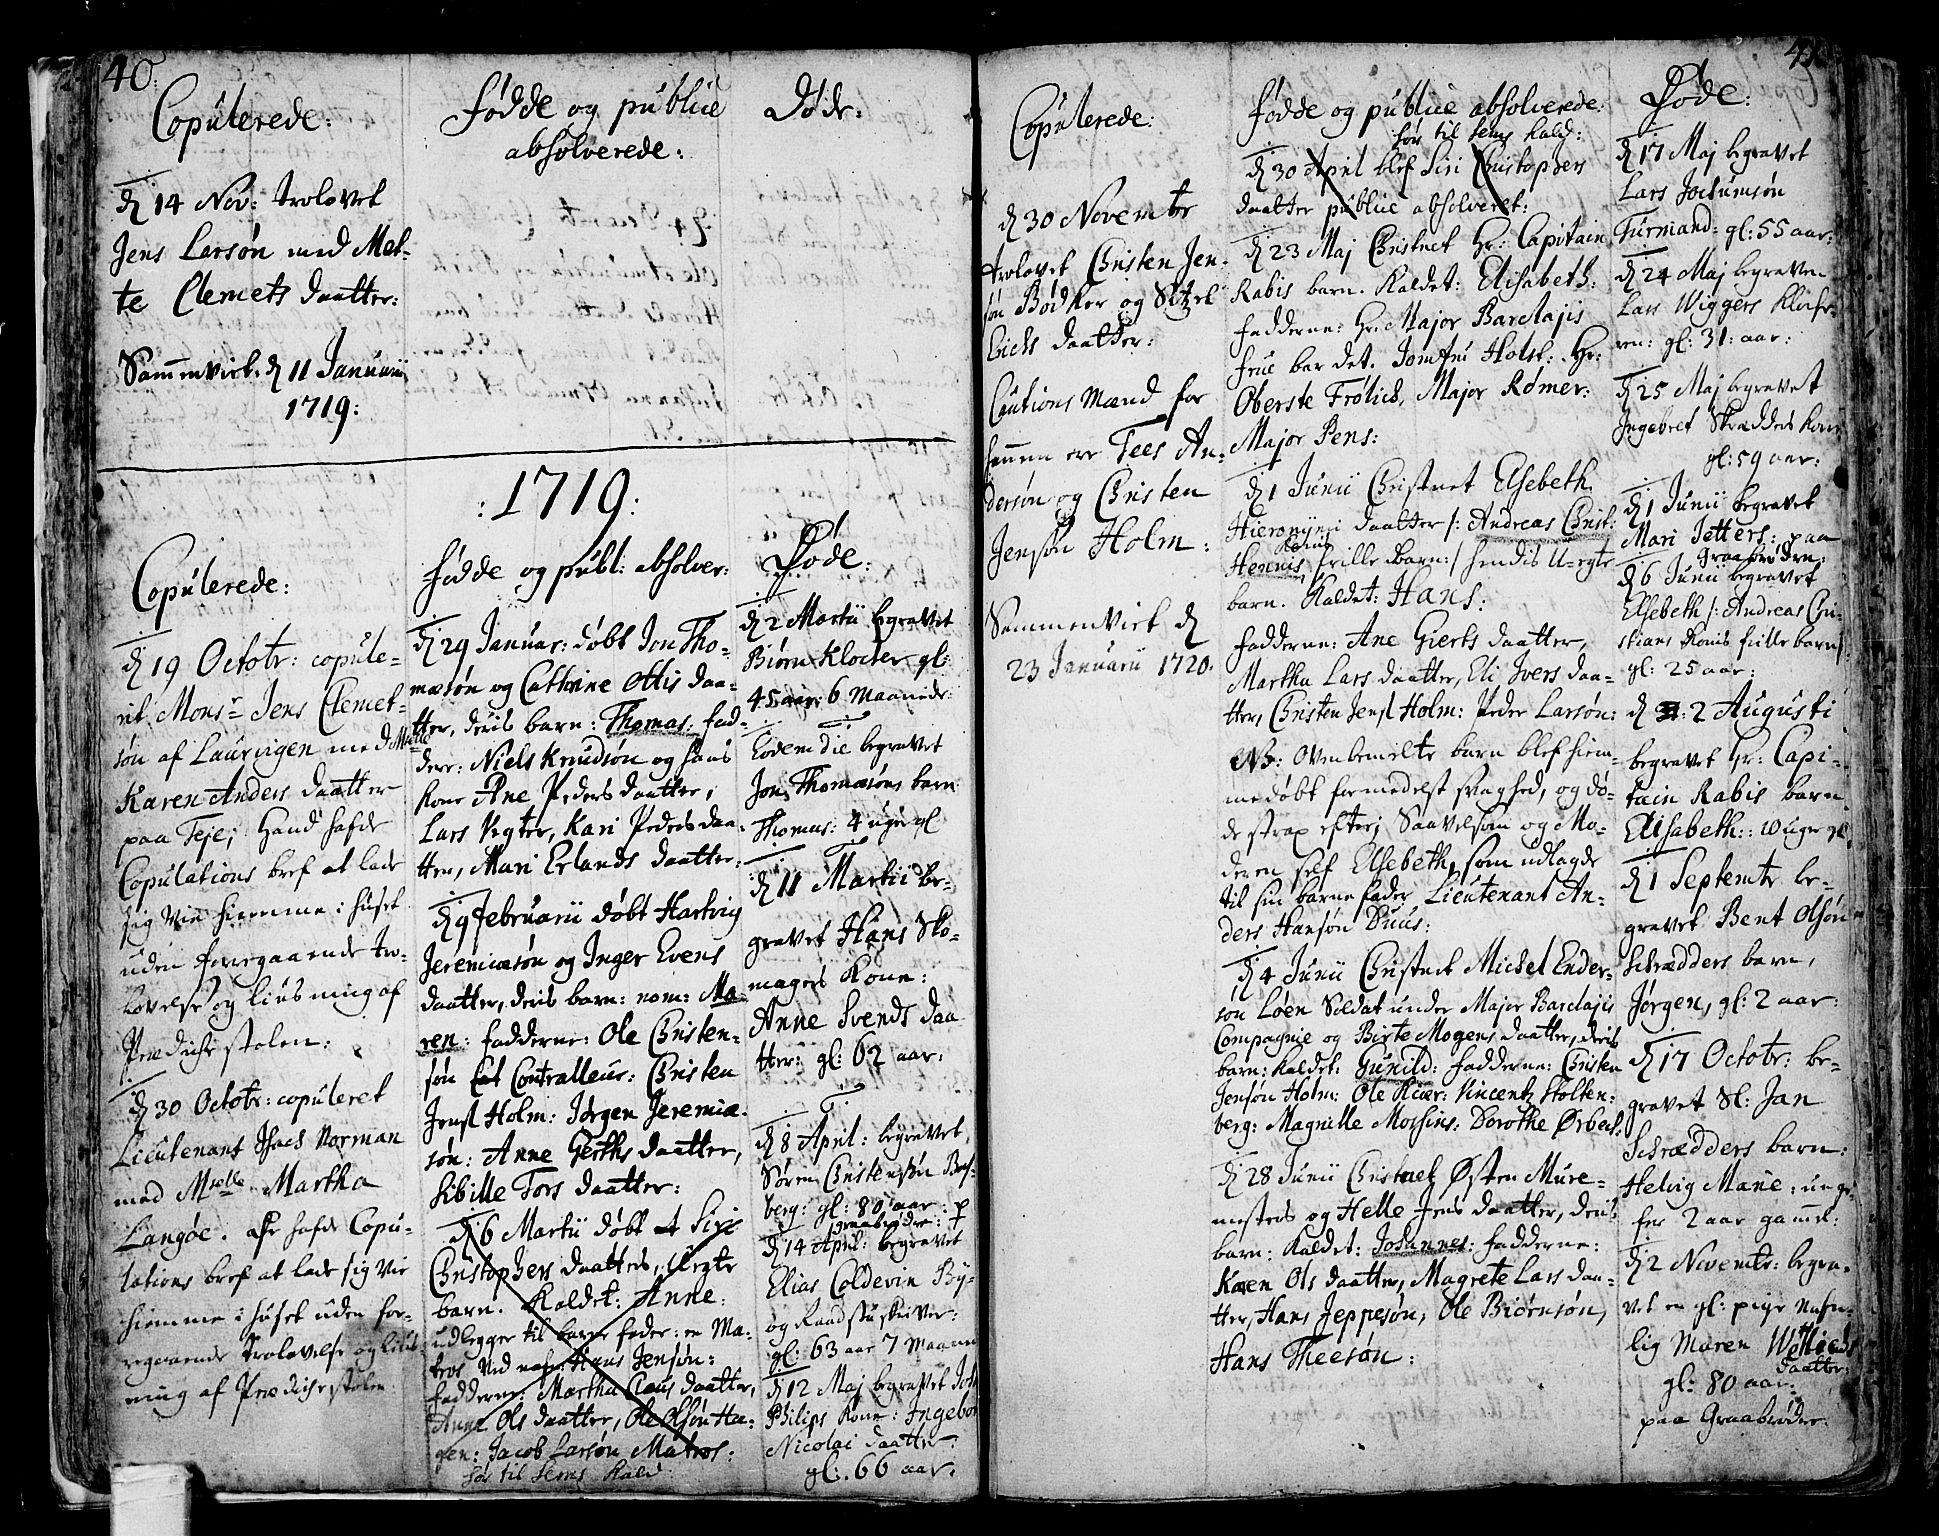 40.
Copulerede:
d 14 Nov: trolovet
Jens Larsøn med Met-
te Clemets daatter:
Sammenviet. d 11 Januarii
1719:
Fødde og publice
absolverede:
Døde:
:1719:
Copulerede:
d 19 Octobr: copule-
ret Monsr Jens Clemet-
søn af Laurvigen med Mlle
Karen Anders daatter
paa Teje; Hand hafde
Copulations bref at lade
sig vie hiemme i huset
uden foregaaende tro-
lovelse og liusning af
Prædichestolen:
d 30 Octobr: copuleret
Lieutenant Isach Norman
med Mselle Martha
Langøe. Er hafde Copu-
lations bref at lade sig vie
hiemme i huset uden for-
egaaende trolovelse og lius-
ning af Prædichestolen.
Fødde og publ: absolver:
d 29 Januar: døbt Jon Tho-
mæsøn og Cathrine Ottis daa-
tter, deris barn: Thomas. fad-
dere: Niels Knudsøn og hans
Kone Ane Peders daatter,
Lars Vegter, Kari Peders daa-
tter, Mari Erlands daatter.
d 9 Februarii døbt Hartvig
Jeremiæsøn og Inger Evens
daatter, deris barn: nom: Ma-
ren: fadderne: Ole Christen-
søn Contralleur: Christen
Jensl Holm: Jørgen Jeremiæ-
søn: Anne Gerths daatter,
Sibille Tors daatter:
d 6 Martii døbt Siri
Christophers daatters, Uegte
barn. Kaldet: Anne:
udlegger til barne fader: en Ma-
tros ved nafn Hans Jensøn:
fadderne: Martha Claus daatter,
Anne Ols daatter, Ole Olsøn Ha-
gen: Jacob Larsøn Matros:
hør til Sems Kald
Døde:
d 2 Martii begravet
Biørn Klocker gl:
45 aar: 6 Maaneder:
Eodem die begravet
Jon Thomæsøns barn
Thomas: 4 uger gl
d 11 Martii be-
gravet Hans Sko-
magers Kone:
Anne Svends daa-
tter: gl: 62 aar:
d 8 April: begravet
Søren Christensøn Bas-
berg: gl: 80 aar: p
Graabrødre:
d 14 April: begravet
Elias Coldevin By-
og Raadstuskriver:
gl: 63 aar 7 Maaned
d 12 Maj begravet Joh
Philips Kone: Ingebor
Nicolai daatter:
gl:. 66 aar.
41
Copulerede:
d 30 Novembr
trolovet Christen Jen-
søn Bødker og Sitzel
Erichs daatter:
Cautions Mænd for
hannem ere Tees An-
dersøn og Christen
Jensøn Holm:
Sammenviet d
23 Januarii 1720.
Fødde og publice absolverede:
hør til Sems Kald:
d 30 April blef Siri Christophers
daatter publice absolveret:
d 23 Maj Christnet Hr: Capitain
Rabis barn. Kaldet: Elisabeth:
fadderne: Hr: Major Barclajis
frue bar det. Jomfru Holst: Hr:
Oberste Frølich, Major Rømer:
Major Pens:
d 1 Junii Christnet Elsebeth
Hieronymi daatter /: Andreas Christ:
Konis
Hennis frille barn:/ hendis U-egte
barn. Kaldet: Hans:
fadderne: Ane Gierts daatter,
Martha Lars daatter, Eli Ivers daa-
tter, Christen Jensl Holm: Peder Larsøn:
NB: Ovenbemelte barn blef hiem-
medøbt formedelst svaghed, og dø-
de strax efter; Saavelsom og Mo-
deren self Elsebeth, som udlagde
til sin barnefader Lieutenant An-
ders Hansøn Duus:
d 4 Junii Christnet Michel Ender-
søn Løen Soldat under Major Barclajis
Compagnie og Birte Mogens daatter, deris
barn: Kaldet: Gunild: fadderne: Christen
Jensøn Holm: Ole Kiær: Vincentz Stolten-
berg: Magnille Morsins: Dorothe Ørbech:
d 28 Junii Christnet Østen Mure-
mesters og Helle Jens daatter, deris
barn: Kaldet: Johannes: fadderne:
Karen Ols daatter, Magrete Lars daa-
tter, Hans Jeppesøn, Ole Biørnsøn,
Hans Theesøn:
Døde:
d 17 Maj begravet
Lars Jochumsøn
Furmand: gl: 55 aar:
d 24 Maj begraven
Lars Wiggers Klocke-
ren: gl: 31: aar:
d 25 Maj begravet
Ingebret Skrædders Kone
gl: 59 aar:
d 1 Junii begravet
Mari Jetters: paa
Graabrødren:
d 6 Junii begravet
Elsebeth /: Andreas Chri-
stians Konis frille barn/:
gl: 25 aar:
d 2 Augusti
begravet Hr: Capi-
tain Rabis barn
Elisabeth:: 10 uger gl
d 1 Septembr be-
gravet Bent Olsøn
Schrædders barn,
Jørgen, gl: 2 aar:
d 17 Octobr: be-
gravet Sl: Jan
Schrædders barn:
Helvig Marie: unge-
fer 2 aar gamel:
d 2 Novembr: begra-
vet en gl: pige nafn-
lig Maren
daatter:
gl: 80 aar:
paa Graabrødre: